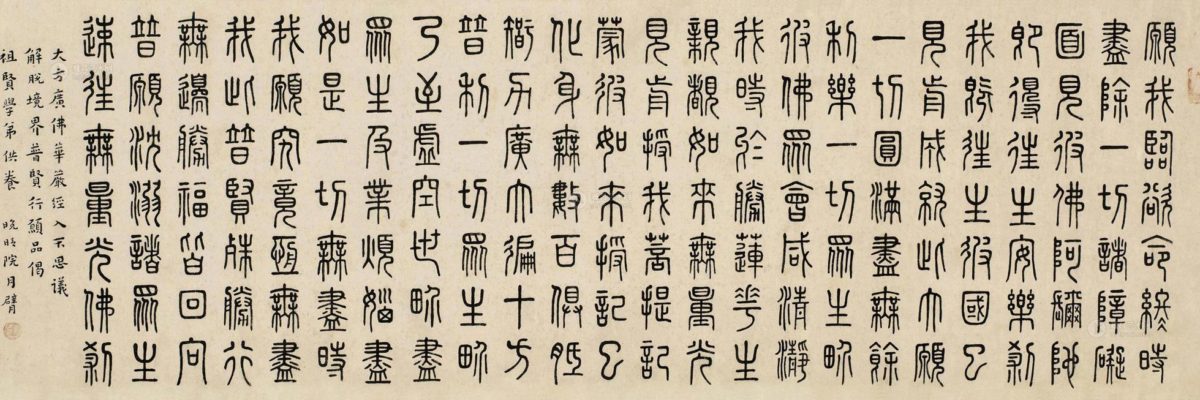 願我臨欲命終時
盡除一切諸障礙
面見彼佛阿彌陀
即得往生安樂剎
我既往生彼國已
見前成就此大願
一切圓滿盡無餘
利樂一切眾生界
彼佛眾會咸清瀞
我時於勝蓮華生
親覩如來無量光
見前授我菩提記
蒙彼如來授記已
化身無數百俱胝
智力廣大徧十方
普利一切眾生界
乃至虛空世界盡
眾生及業煩惱盡
如是一切無盡時
我願究竟恆無盡
我此普賢殊勝行
無邊勝福皆回向
普願沈溺諸眾生
速往無量光佛剎
大方廣佛華嚴經入不思議
解脫境界普賢行願品偈
祖賢學弟供養 晚晴院月臂